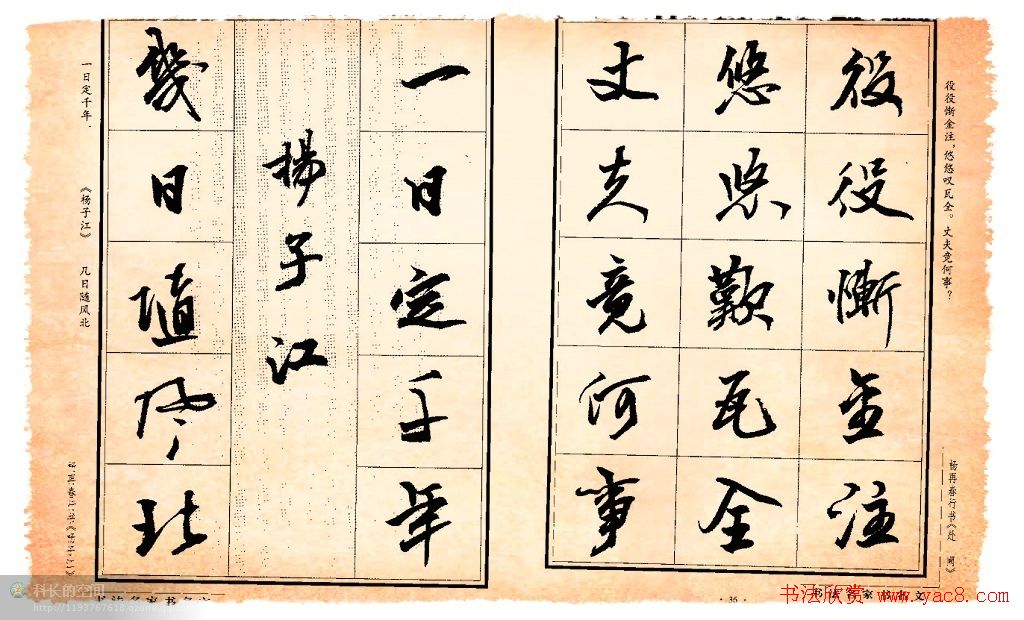 役役慚金注
悠悠歎瓦全
丈夫竟何事
一日定千年
揚子江
幾日隨風北
役役惭金注，悠悠叹瓦全。丈夫竟何事？
杨再春行书《赴阙》
一日定千年。
《杨子江》
几日随风北
·36·
科长的空间
http://1193767618.qzone.qq.com
书法欣赏 www.yac8.com